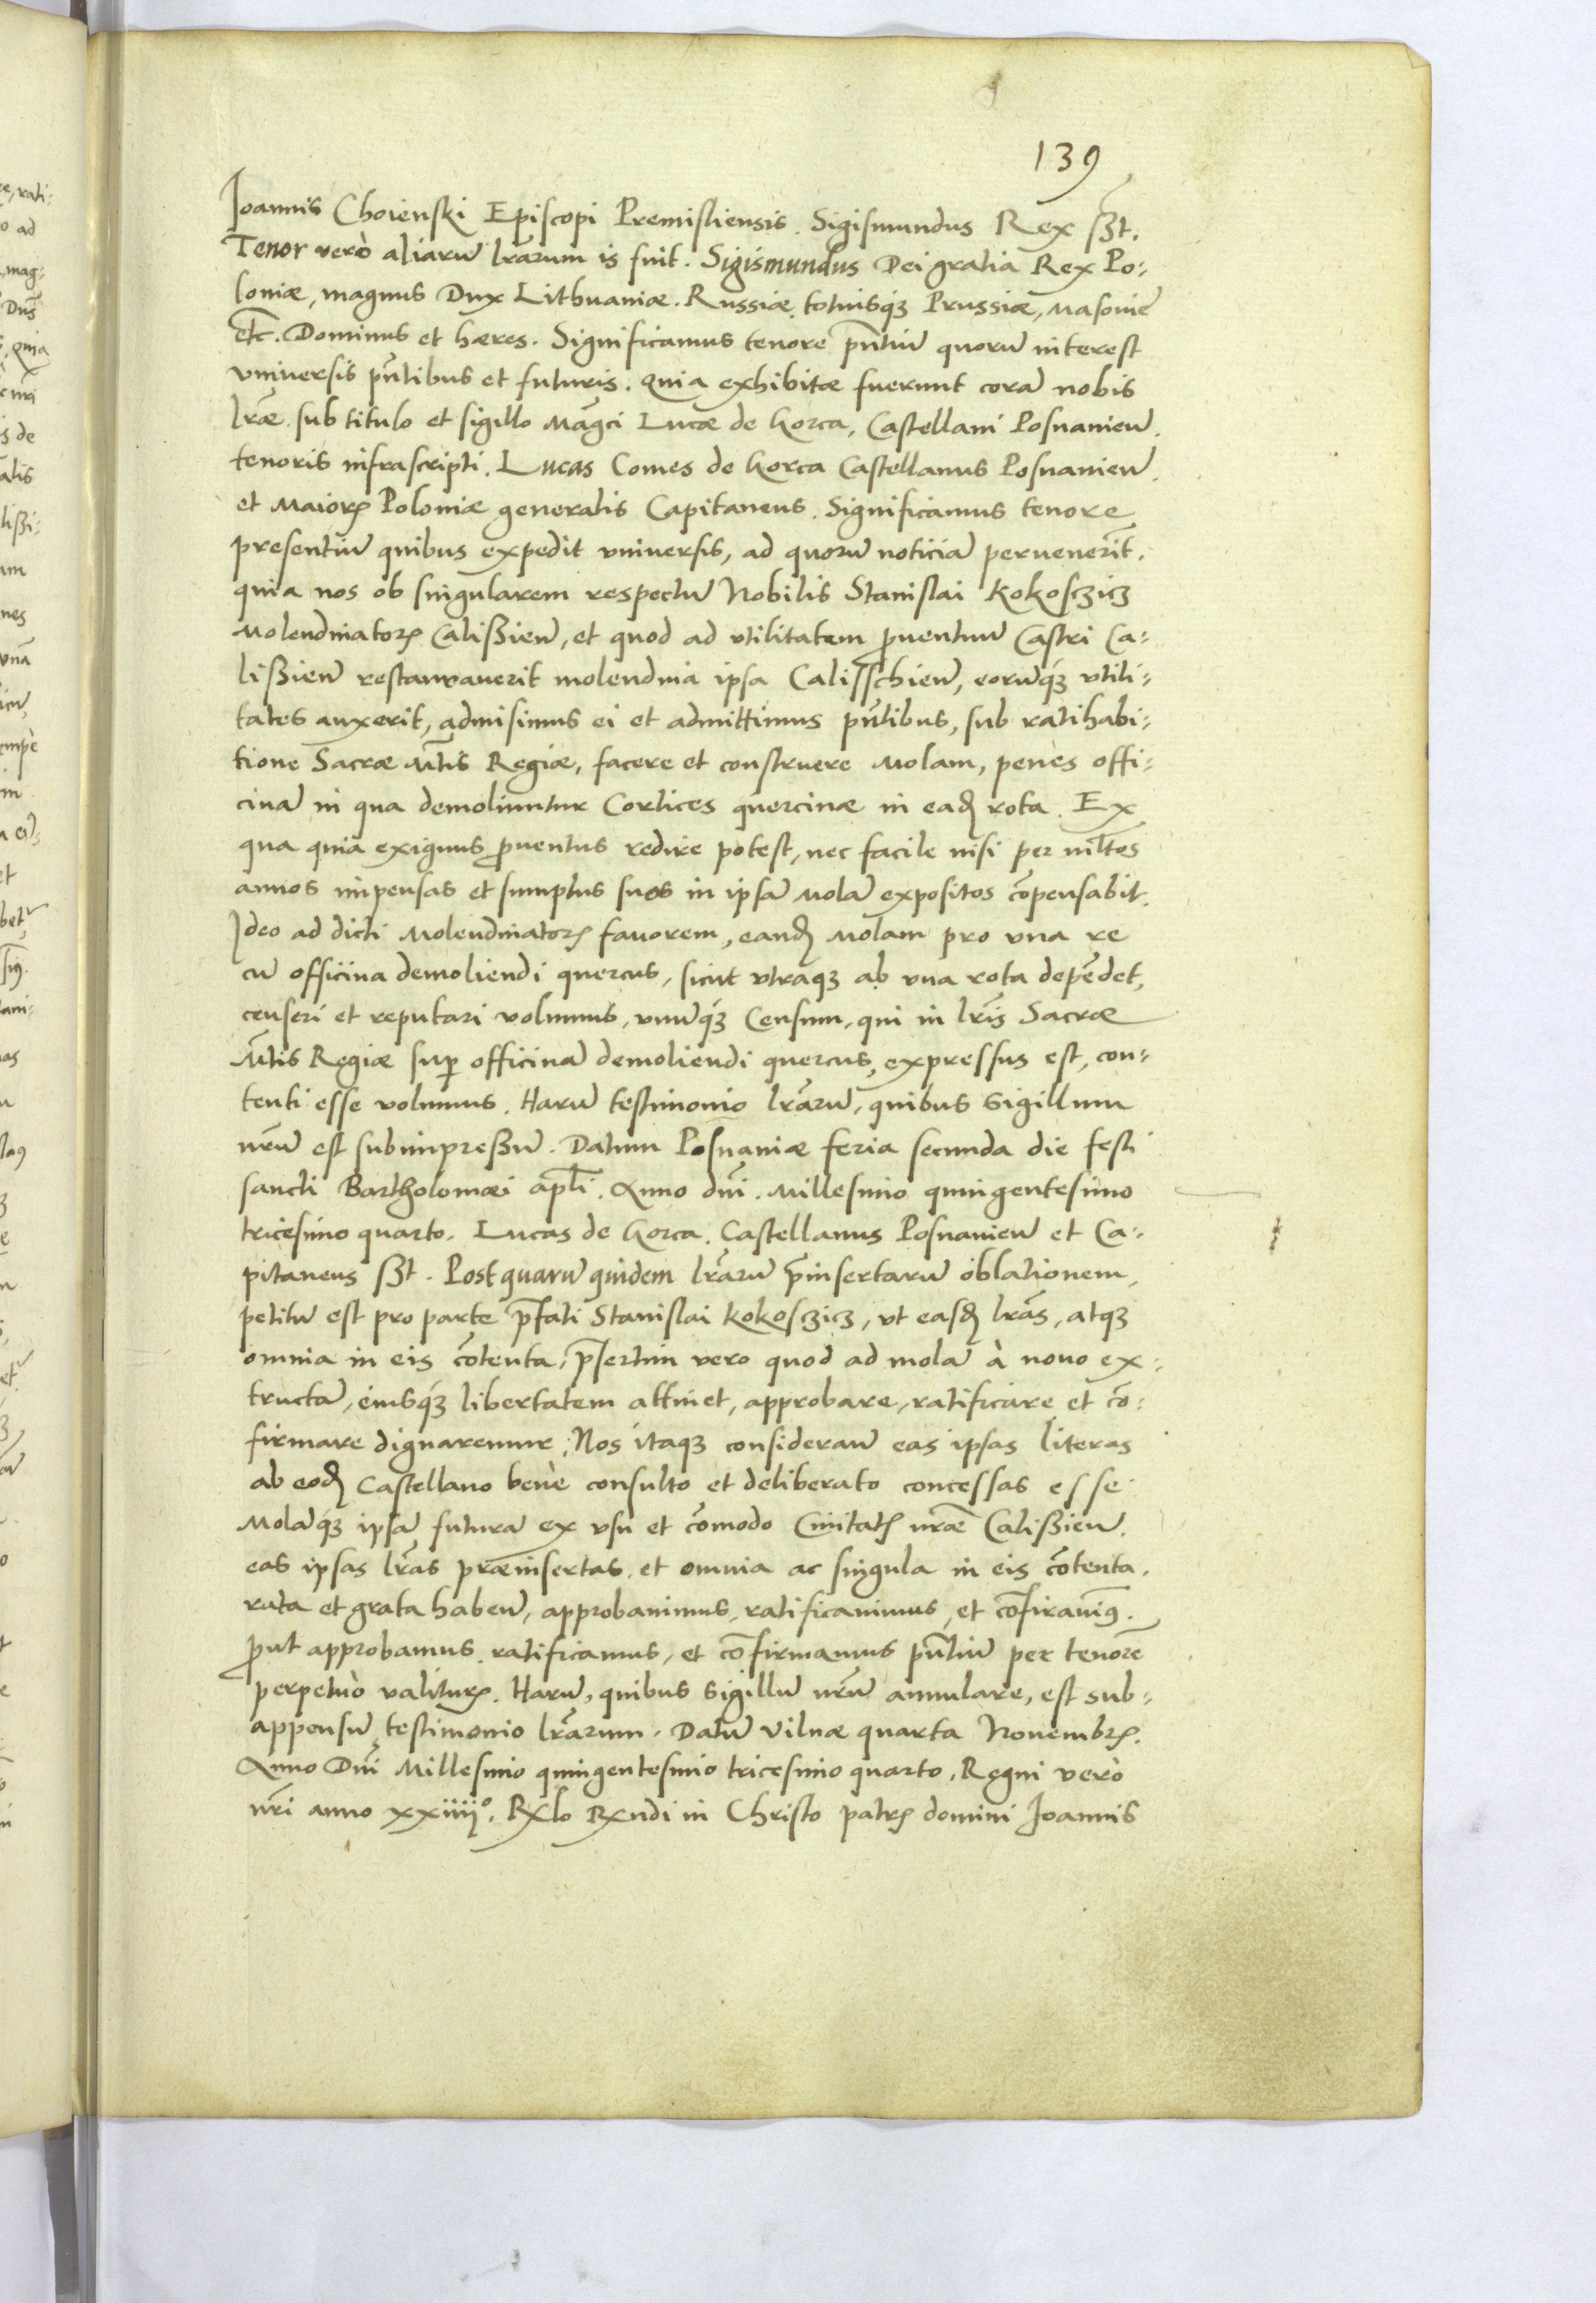 139
Ioannis Choienski Episcopi Premisliensis. Sigismundus Rex sszt.
Tenor verò aliarū lrārum is fuit. Sigismundus Dei gratia Rex Po-
loniæ, magnus Dux Lithuaniæ. Russiæ totiusq́ꝫ Prussiæ, Masoniē
etc. Dominus et hæres. Significamus tenore pn̄tiū quorū interest
vniuersis pn̄tibus et futuris. Quia exhibitæ fuerunt corā nobis
lrāe sub titulo et sigillo Mag̃ci Lucæ de Gorca, Castellani Posnanien̄.
tenoris infrascripti. Lucas Comes de Gorca Castellanus Posnanien̄.
et Maioꝝ Poloniæ generalis Capitaneus. Significamus tenore
presentiū quibus expedit vniuersis, ad quorū noticiā peruenerit.
quia nos ob singularem respectū Nobilis Stanislai Kokosczicz
Molendinatoꝝ Calißien̄, et quod ad vtilitatem ꝓuentuū Castri Ca-
lißien̄ restaurauerit molendina ipsa Calisschien̄, eorūq́ꝫ vtili-
tates auxerit, admisimus ei et admittimus pn̄tibus, sub ratihabi-
tione Sacræ Mt̄is Regiæ, facere et construere Molam, penes offi-
cinā in qua demoliuntur Cortices quercinæ in eadꝫ rota. Ex
qua quia exiguus ꝓuentus redire potest, nec facile nisi per ml̄tos
annos impensas et sumptus suos in ipsā Molā expositos cōpensabit.
Ideo ad dicti Molendinatoꝝ fauorem, eandꝫ Molam pro vna re
cū officina demoliendi quercus, sicut vtraqꝫ ab vna rota depēdet,
censeri et reputari volumus, vnūq́ꝫ Censum, qui in lrīs Sacræ
Mt̄is Regiæ suꝑ officinā demoliendi quercus, expressus est, con-
tenti esse volumus. Harū testimonio lrārū, quibus Sigillum
nrūm est subimpreßū. Datum Posnaniæ feria secunda die festi
sancti Bartholomæi apl̄i. Anno dn̄i. Millesimo quingentesimo
tricesimo quarto. Lucas de Gorca. Castellanus Posnanien̄ et Ca-
pitaneus sszt. Postquarū quidem lrārū p̄insertarū oblationem,
petitū est pro parte p̄fati Stanislai Kokosczicz, vt easdꝫ lrās, atqꝫ
omnia in eis cōtenta, p̄sertim vero quod ad molā à nouo ex-
tructā, eiusq́ꝫ libertatem attinet, approbare, ratificare et cō-
firmare dignaremur. Nos itaqꝫ consideran̄ eas ipsas literas
ab eodꝫ Castellano bene consulto et deliberato concessas esse
Molāq́ꝫ ipsā futurā ex vsu et cōmodo Ciuitatꝭ nrāe Calißien̄.
eas ipsas lrās præinsertas, et omnia ac singula in eis cōtenta.
rata et grata haben̄, approbauimus, ratificauimus, et cōfirauimꝰ.
ꝓut approbamus, ratificamus, et cōfirmamus pn̄tiū per tenorē
perpetuò valituꝝ. Harū, quibus sigillū nrūm annulare, est sub-
appensū testimonio lrārum. Datū Vilnæ quarta Nouembꝝ.
Anno Dn̄i Millesimo quingentesimo tricesimo quarto, Regni verò
nr̄i anno xxiiij°. Rxlo Rxndi in Christo patꝝ domini Ioannis